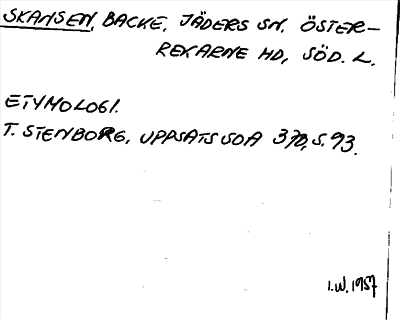 SKANSEN, BACKE, JÄDERS SN, ÖSTER-
REKARNE HD, SÖD. L.
ETYMOLOGI.
T. STENBORG, UPPSATS SOA 370, S. 93.
I.W. 1957